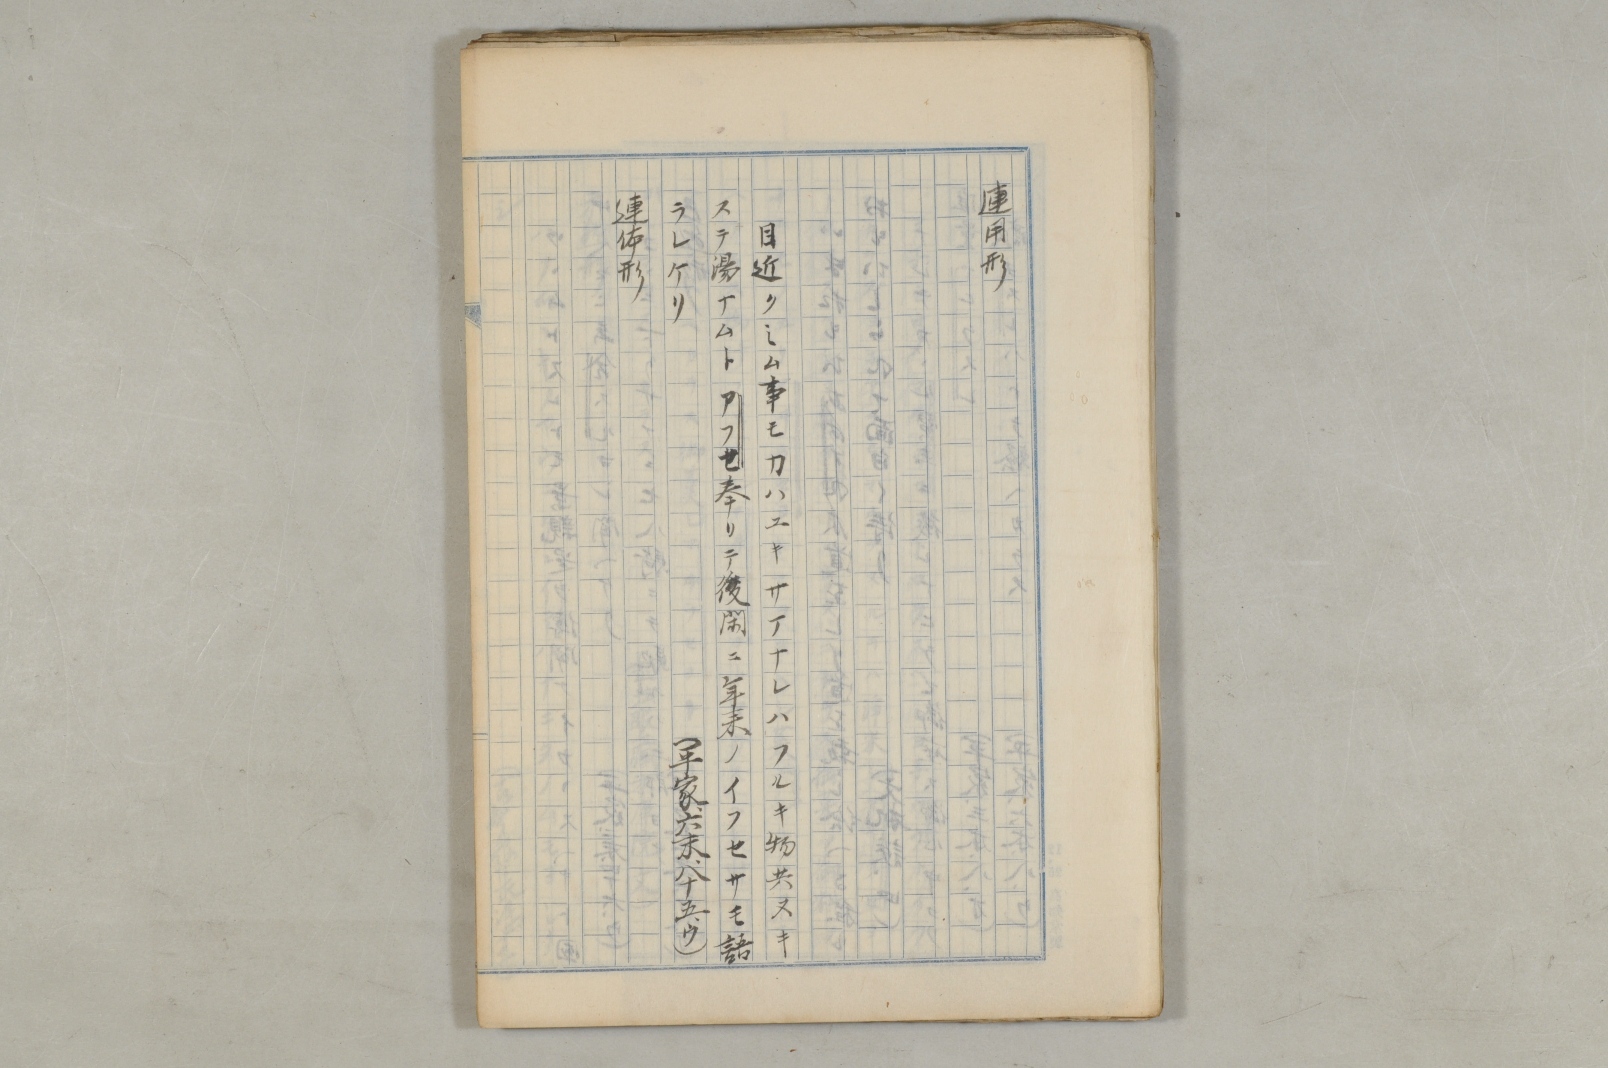 連用形
目近クミム事モカハユキサアナレハフルキ物共ヌキ
ステ湯ナムトアフセ奉リテ後閑ニ年来ノイフセサモ語
ラレケリ
(平家、六末、八十五、ウ)
連体形